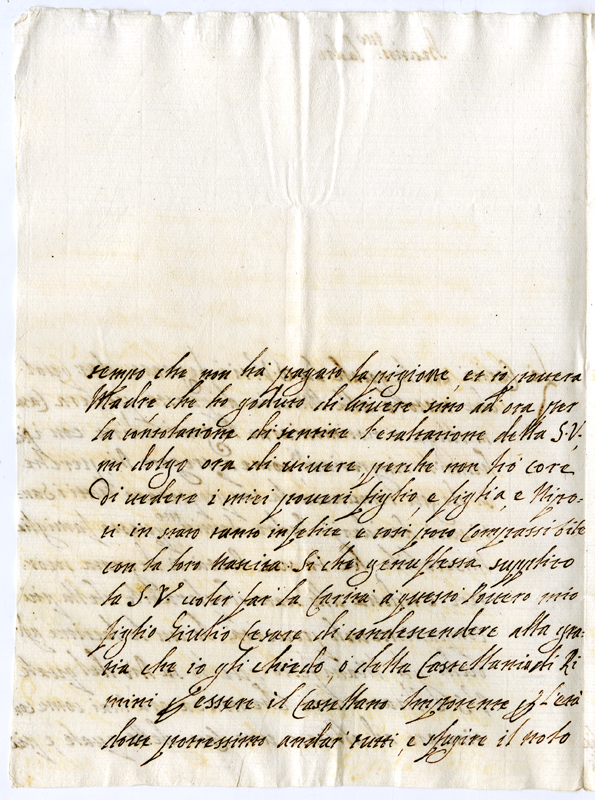 tempo che non hà pagato la pigione, et io povera
Madre che ho goduto di vivere sino ad'ora per
la consolatione di sentire l'esaltatione della S.V.
mi dolgo ora di vivere perche non hò core
di vedere i miei poveri figlio, e figlia, e Nipo=
ti in stato tanto infelice, e così poco compassibile
con la loro nascita. Si che genuflessa supplico
la S.V. voler far la Carità a questo Povero mio
figlio Giulio Cesare di condescendere alla gra=
tia che io gli chiedo, ò della Castellania di Ri
mini p essere il Castellano Impotente p l'età
dove potressimo andar tutti, e sfugire il nolo